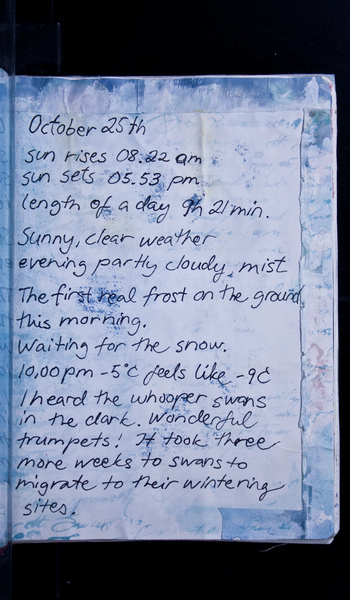 October 25th
sun rises 08.22 am
sun sets 05.53 pm
length of a day 9h 21min.
Sunny, clear weather
evening partly cloudy, mist
The first real frost on the ground
this morning.
Waiting for the snow.
10.00pm -5°C feels like -9C
I heard the whooper swans
in the dark. Wonderful
trumpets! It took three
more weeks to swans to
migrate to their wintering
sites.